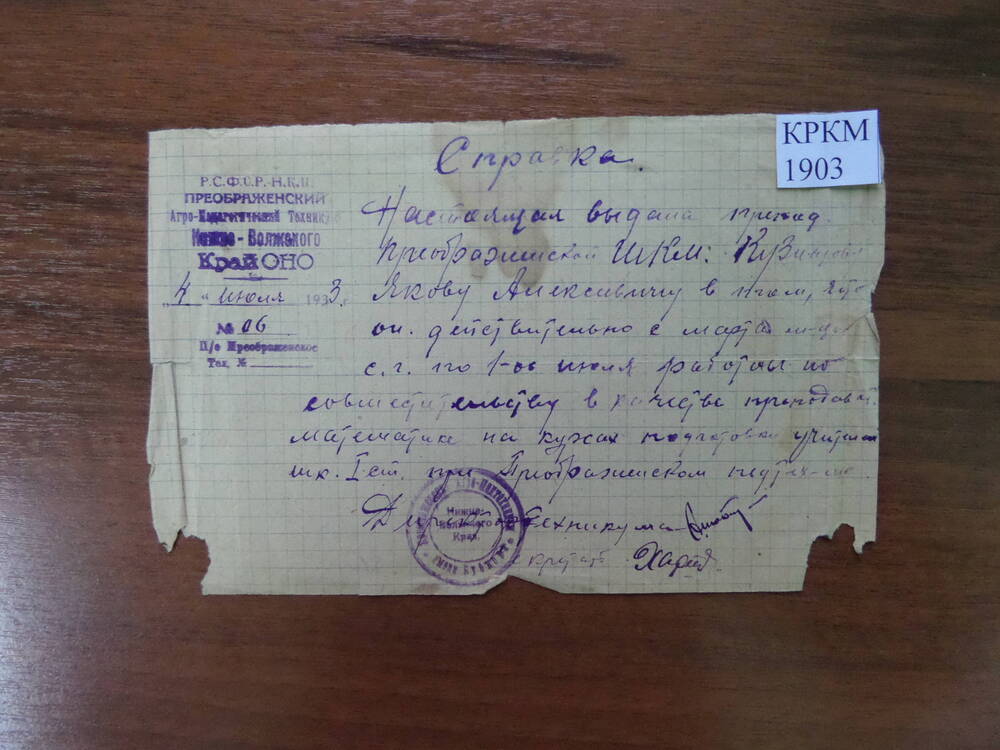 КРКМ
1903
Справка.
Р.С.Ф.С.Р.-Н.К.П.
ПРЕОБРАЖЕНСКИЙ
Агро-Педагогический Техникум
Нижне-Волжского
КрайОНО
"4" июля 1933 г.
№ 06
П/о Преображенское
Тел. №
Настоящая выдана препод.
Преображенской ШКМ:
Якову Алексеевичу в том, что
он действительно с марта м-ца
с.г. по 1-ое июля работал по
совместительству в качестве преподават.
математики на курсах подготовки учителей
шк. I ст. при Преображенском педтех-ме.
Директор техникума
Нижне-
Волжского
Края.